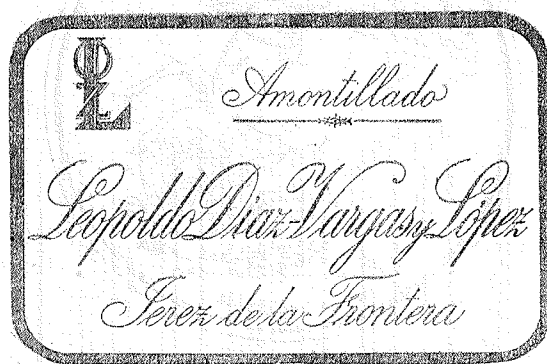 Amontillado
Leopoldo Diaz-Vargas y López
Jerez de la Frontera